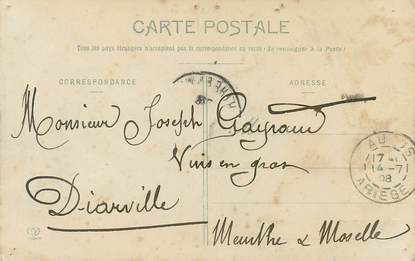 CARTE POSTALE
Tous les pays étrangers n'acceptent pas la correspondance au recto (Se renseigner à la Poste)
CORRESPONDANCE
ADRESSE
Monsieur Joseph Gayraud
Vins en gros
Diarville
Meurthe & Moselle
17
14-7
08
ARIEGE